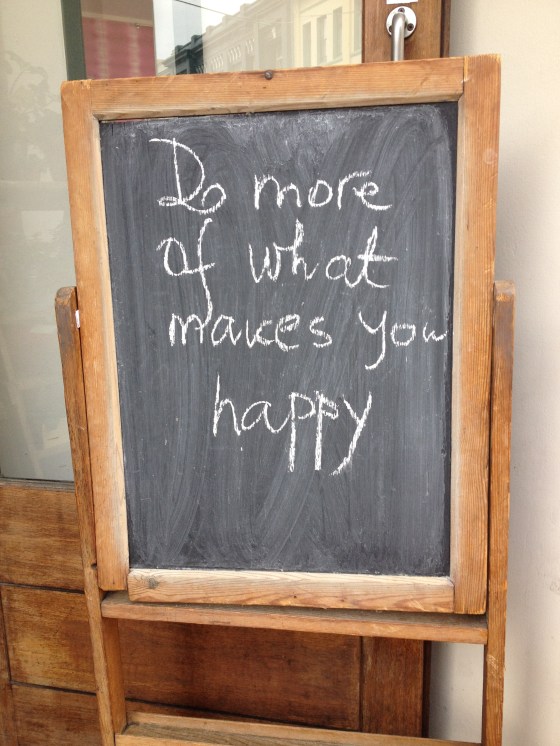 Do more
of what
makes you
happy